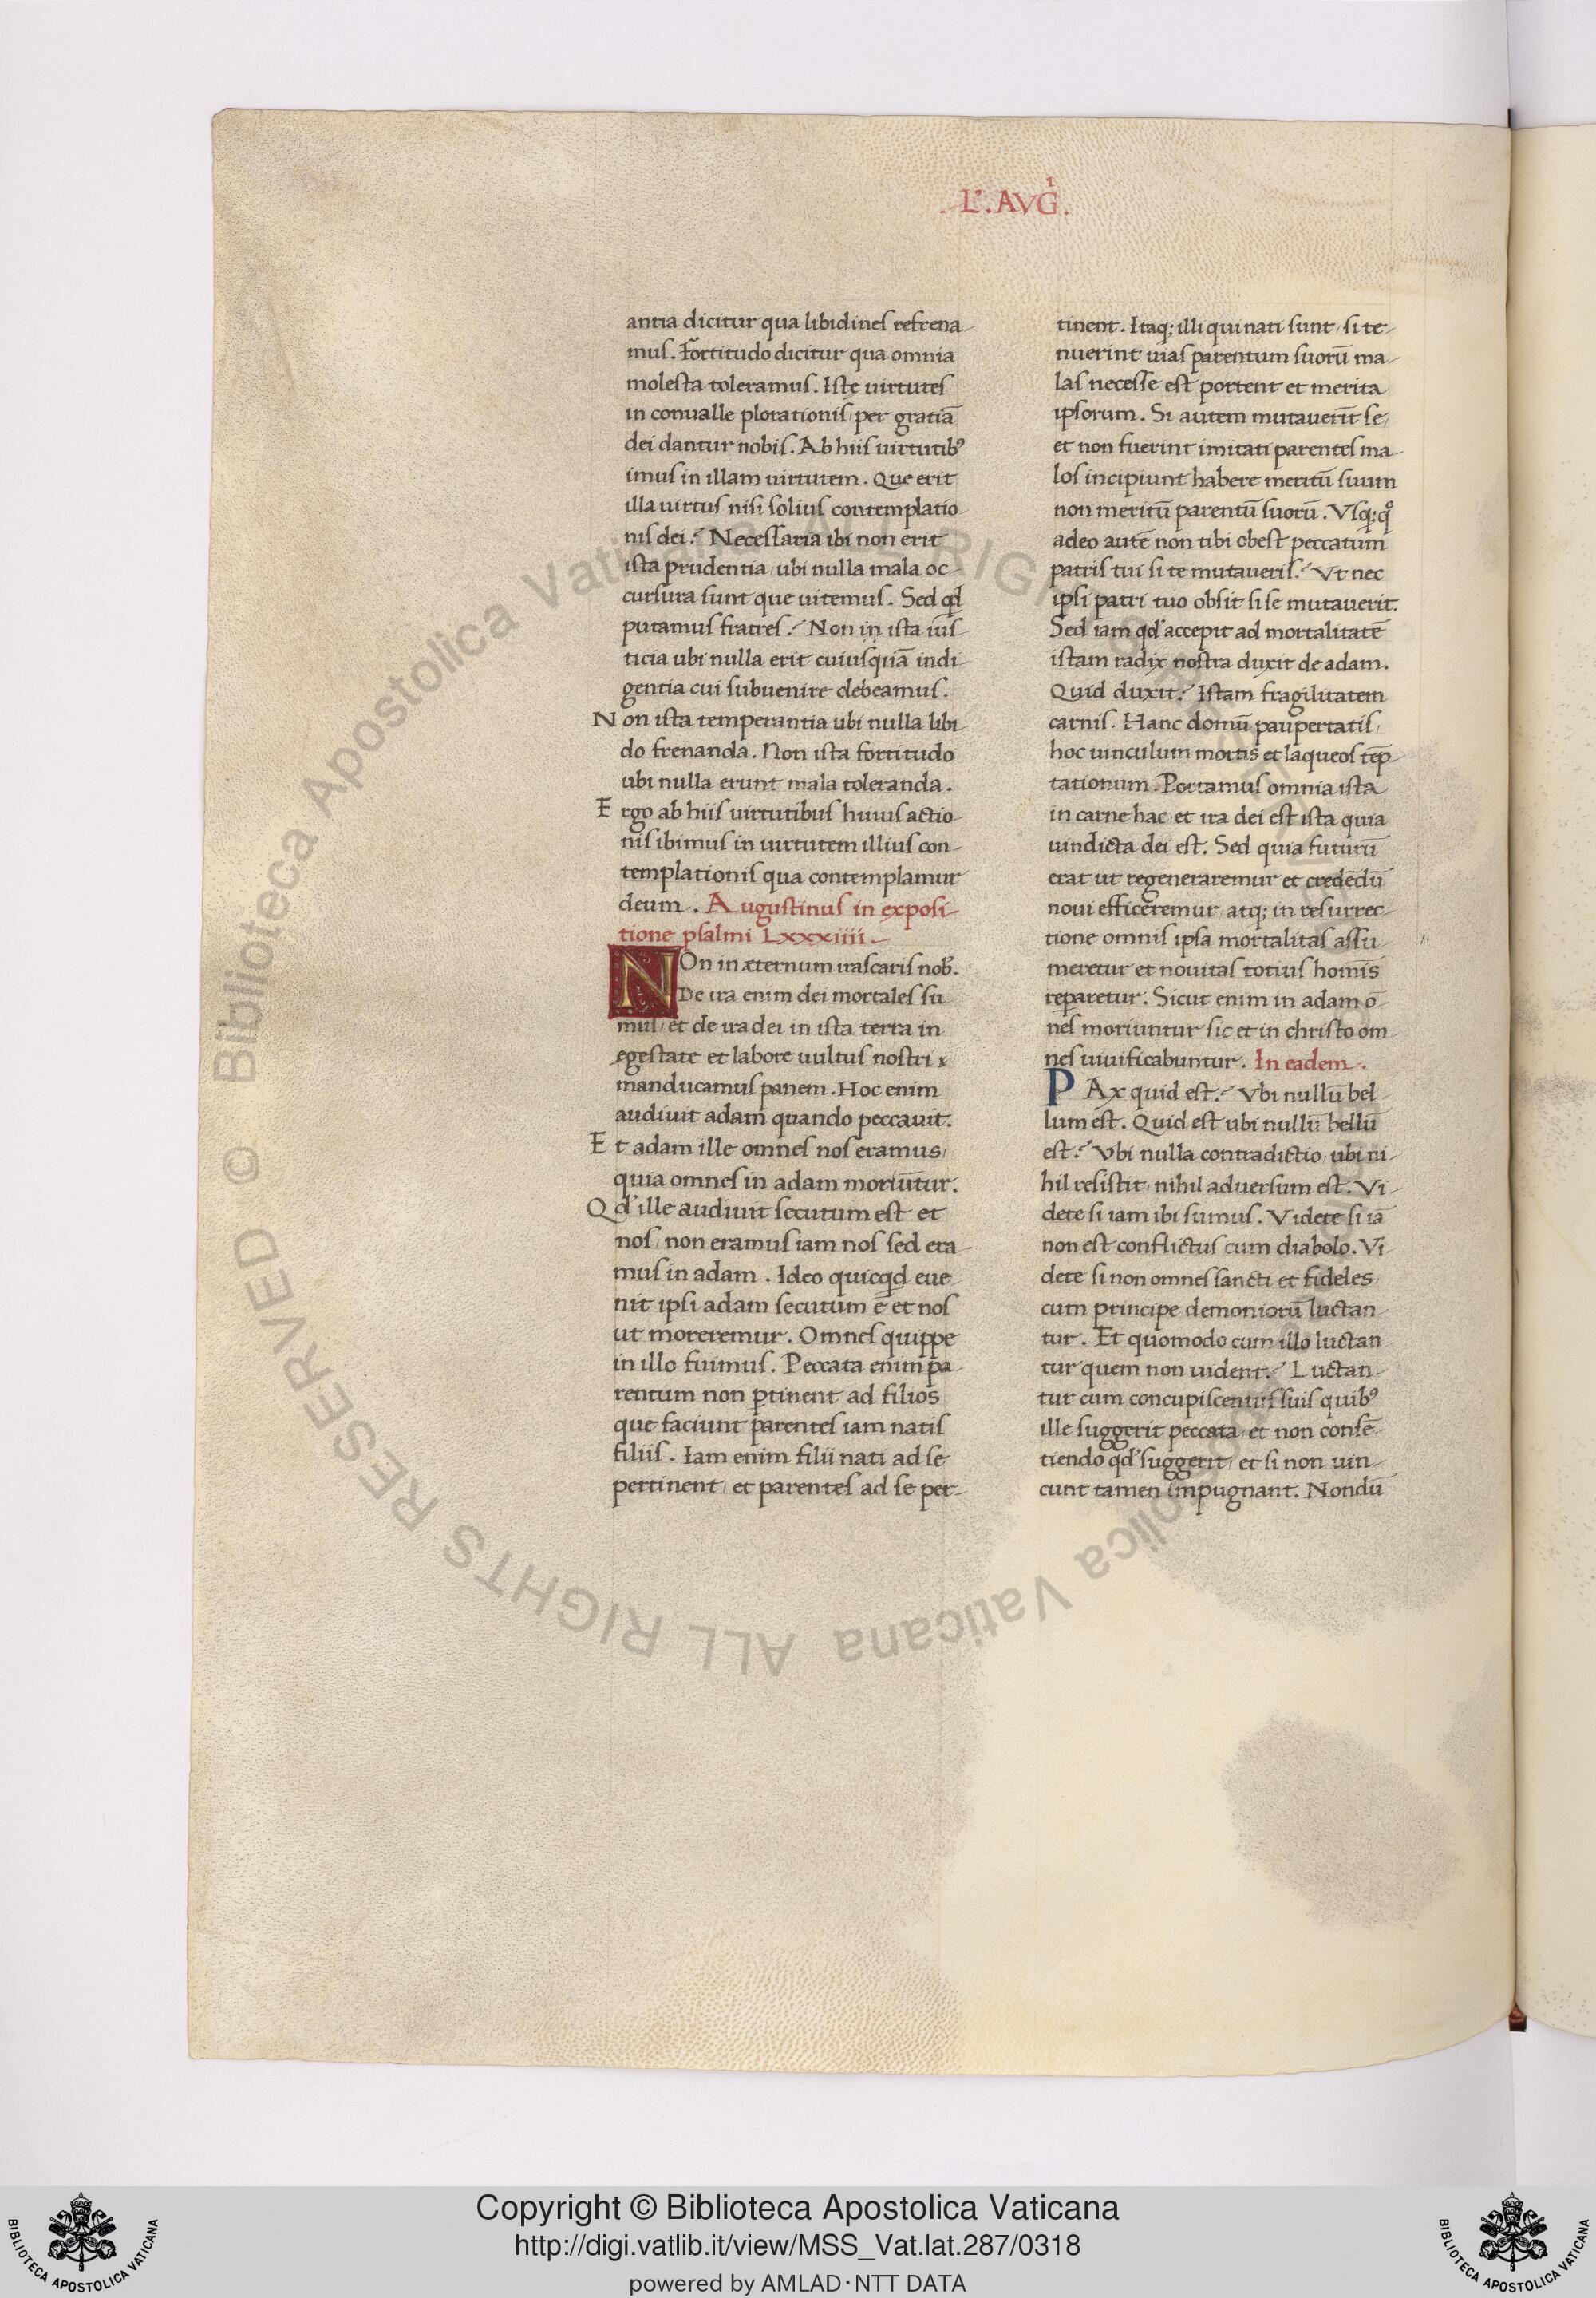 .L’.AVG̍.
antia dicitur qua libidineſ refrena
muſ. Fortitudo dicitur qua omnia
moleſta toleramuſ. Iſtę uirtuteſ
in conualle plorationiſ per gratiā
dei dantur nobiſ. Ab hiiſ uirtutibꝰ
imuſ in illam uirtutem. Que erit
illa uirtuſ niſi ſoliuſ contemplatio
niſ dei? Neceſſaria ibi non erit
iſta prudentia ubi nulla mala oc-
curſura ſunt que uitemuſ. Sed qd̄
putamuſ fratreſ? Non in iſta iuſ
ticia ubi nulla erit cuiuſquā indi
gentia cui ſubuenire debeamuſ.
Non iſta temperantia ubi nulla libi
do frenanda. Non iſta fortitudo
ubi nulla erunt mala toleranda.
Ergo ab hiiſ uirtutibuſ huiuſ actio
niſ ibimuſ in uirtutem illiuſ con-
templationiſ qua contemplamur
deum. Auguſtinuſ in expoſi-
tione pſalmi Lxxxiiii.
NOn in æternum iraſcariſ nob̄.
De ira enim dei mortaleſ ſu
muſ et de ira dei in iſta terra in
egeſtate et labore uultuſ noſtri
manducamuſ panem. Hoc enim
audiuit adam quando peccauit.
Et adam ille omneſ noſ eramuſ
quia omneſ in adam moriūtur.
Qd’ ille audiuit ſecutum eſt et
noſ non eramuſ iam noſ ſed era-
muſ in adam. Ideo quicqd̄ eue
nit ipſi adam ſecutum ē et noſ
ut moreremur. Omneſ quippe
in illo fuimuſ. Peccata enim pa
rentum non ꝑtinent ad filios
que faciunt parenteſ iam natiſ
filiiſ. Iam enim filii nati ad ſe
pertinent et parenteſ ad ſe per-
tinent. Itaq; illi qui nati ſunt ſi te-
nuerint uiaſ parentum ſuorū ma-
laſ neceſſe eſt portent et merita
ipſorum. Si autem mutauerīt ſe
et non fuerint imitati parenteſ ma-
loſ incipiunt habere meritū ſuum
non meritū parentū ſuorū. Vſq; qͦ
adeo autē non tibi obeſt peccatum
patriſ tui ſi te mutaueriſ? Vt nec
ipſi patri tuo obſit ſi ſe mutauerit.
Sed iam qd’ accepit ad mortalitatē
iſtam radix noſtra duxit de adam.
Quid duxit? Iſtam fragilitatem
carniſ. Hanc domū paupertatiſ
hoc uinculum mortis et laqueoſ tēp
tationum. Portamuſ omnia iſta
in carne hac et ira dei eſt iſta quia
uindicta dei eſt. Sed quia futurū
erat ut regeneraremur et credēdū
noui efficeremur atq; in reſurrec-
tione omniſ ipſa mortalitaſ aſſu
meretur et nouitaſ totiuſ homīſ
repararetur. Sicut enim in adam ō
neſ moriuntur ſic et in chriſto om
neſ uiuificabuntur. In eadem.
PAx quid eſt? Vbi nullū bel-
lum eſt. Quid eſt ubi nullū bellū
eſt? Vbi nulla contradictio ubi ni-
hil reſiſtit nihil aduerſum eſt. Vi-
dete ſi iam ibi ſumuſ. Videte ſi iā
non eſt conflictuſ cum diabolo. Vi-
dete ſi non omneſ ſancti et fideleſ
cum principe demoniorū luctan-
tur. Et quomodo cum illo luctan
tur quem non uident? Luctan-
tur cum concupiſcentiiſ ſuiſ quibꝰ
ille ſuggerit peccata et non conſē-
tiendo qd’ ſuggerit et ſi non uin-
cunt tamen impugnant. Nondū
© Biblioteca Apostolica Vaticana ALL RIGHTS RESERVED
Copyright © Biblioteca Apostolica Vaticana
http://digi.vatlib.it/view/MSS_Vat.lat.287/0318
powered by AMLAD·NTT DATA
BIBLIOTECA APOSTOLICA VATICANA
BIBLIOTECA APOSTOLICA VATICANA